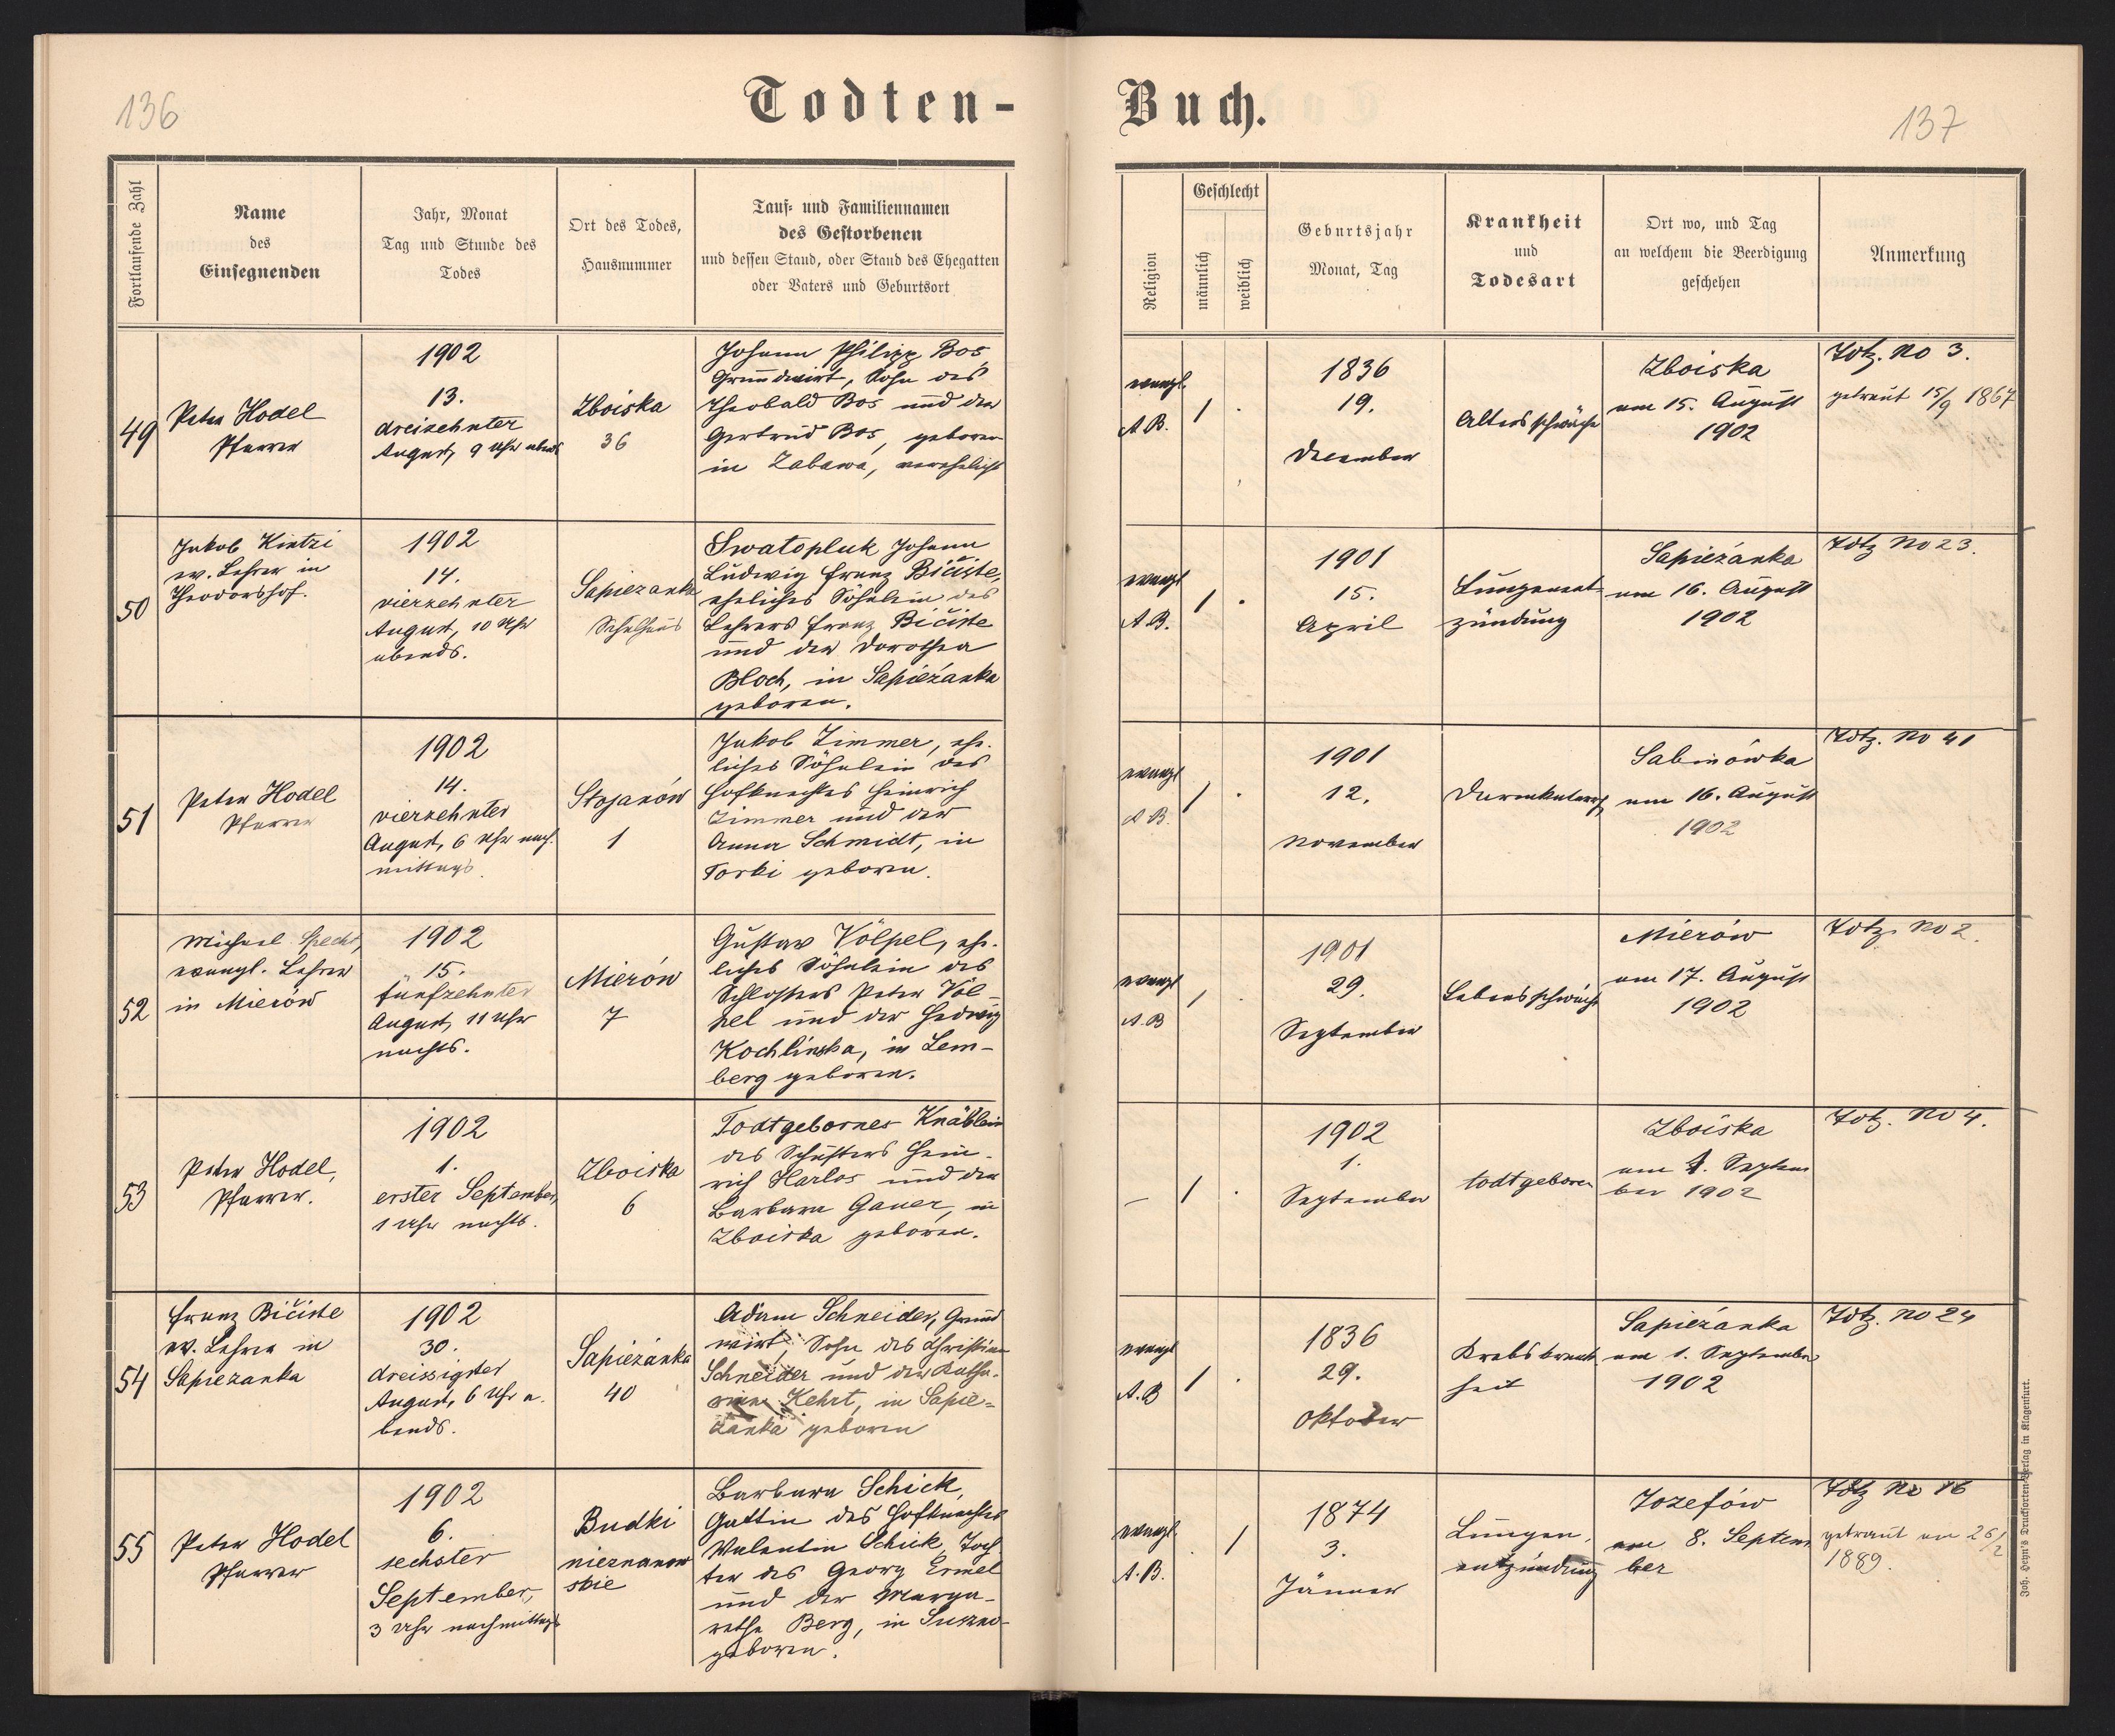 136
Todten-
Fortlaufende Zahl
Name
des
Einsegnenden
Jahr, Monat
Tag und Stunde des
Todes
Ort des Todes,
Hausnummer
Tauf- und Familiennamen
des Gestorbenen
und dessen Stand, oder Stand des Ehegatten
oder Vaters und Geburtsort
49
Peter Hodel
Pfarrer
1902
13.
dreizehnter
August, 9 Uhr abends
Zboiska
36
Johann Philipp Bos,
Grundwirt, Sohn des
Theobald Bos und der
Gertrud Bos, geboren
in Zabawa, verehelicht
50
Jakob Kintzi
ev. Lehrer in
Theodorshof.
1902
14.
vierzehnter
August, 10 Uhr
abends.
Sapiezanka
Schulhaus
Swatopluk Johann
Ludwig Franz Bičiste,
eheliches Söhnlein des
Lehrers Franz Bičiste
und der Dorothea
Bloch, in Sapieżanka
geboren.
51
Peter Hodel
Pfarrer
1902
14.
vierzehnter
August, 6 Uhr nach-
mittags.
Stojanów
1
Jakob Zimmer, ehe-
liches Söhnlein des
Hofknechtes Heinrich
Zimmer und der
Anna Schmidt, in
Torki geboren.
52
Michael Specht,
evangl. Lehrer
in Mierów
1902
15.
fünfzehnter
August, 11 Uhr
nachts.
Mierów
7
Gustav Völpel, ehe-
liches Söhnlein des
Schlossers Peter Völ-
pel und der Hedwig
Kochlinska, in Lem-
berg geboren.
53
Peter Hodel,
Pfarrer.
1902
1.
erster September,
1 Uhr nachts.
Zboiska
6
Todtgebornes Knäblein
des Schusters Hein-
rich Harlos und der
Barbara Gauer, in
Zboiska geboren.
54
Franz Bičiste
ev. Lehrer in
Sapiezanka
1902
30.
dreissigster
August, 6 Uhr a-
bends.
Sapieżanka
40
Adam Schneider, Grund
wirt, Sohn des Christian
Schneider und der Katha-
rina Kehrt, in Sapie-
żanka geboren
55
Peter Hodel
Pfarrer
1902
6.
sechster
September,
3 Uhr nachmittags
Budki
nieznanow
skie
Barbara Schick,
Gattin des Hofknechtes
Valentin Schick, Toch
ter des Georg Ermel
und der Marga-
rethe Berg, in Suszno
geboren.
Buch.
137
Religion
Geschlecht
männlich
weiblich
Geburtsjahr
Monat, Tag
Krankheit
und
Todesart
Ort wo, und Tag
an welchem die Beerdigung
geschehen
Anmerkung
evangl.
A.B.
1 .
1836
19.
December
Altersschwäche
Zboiska
am 15. August
1902
Totz. No 3.
getraut 15/9 1867
evangl
A.B.
1 .
1901
15.
April
Lungenent-
zündung
Sapieżanka
am 16. August
1902
Totz No 23.
evangl
A.B.
1 .
1901
12.
November
Darmkatarrh
Sabinówka
am 16. August
1902
Totz. No 41
evangl
A.B
1 .
1901
29.
September
Lebensschwäche
Mierów
am 17. August
1902
Totz. No 2.
–
1 .
1902
1.
September
todtgeboren
Zboiska
am 1. Septem
ber 1902
Totz. No 4.
evangl
A.B
1 .
1836
29.
Oktober
Krebskrank
heit
Sapieżanka
am 1. September
1902
Totz. No 24
evangl.
A.B.
. 1
1874
3.
Jänner
Lungen-
entzündung
Jozefów
am 8. Septem
ber
Totz No 16
getraut am 26/2
1889.
Joh. Heyn's Drucksorten-Verlag in Klagenfurt.